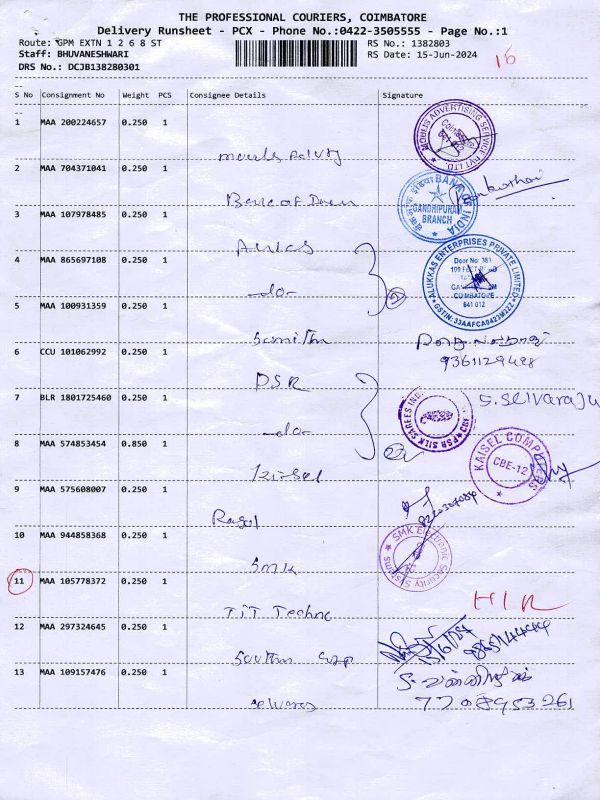 THE PROFESSIONAL COURIERS, COIMBATORE
Delivery Runsheet - PCX - Phone No.:0422-3505555 - Page No.:1
Route: GPM EXTN 1 2 6 8 ST
RS No.: 1382803
Staff: BHUVANESHWARI
RS Date: 15-Jun-2024
DRS No.: DCJB138280301
16
S No Consignment No Weight PCS Consignee Details Signature
1 MAA 200224657 0.250 1
MOBLIS ADVERTISING SERVICE PVT LTD.
2 MAA 704371041 0.250 1
BANK OF INDIA
GANDHIPURAM
BRANCH
3 MAA 107978485 0.250 1
4 MAA 865697108 0.250 1
-do-
2
ALUKKAS ENTERPRISES PRIVATE LIMITED
Door No: 181
COIMBATORE
641 012
GSTIN: 33AAFCA0423M2ZZ
5 MAA 100931359 0.250 1
Sumithr
6 CCU 101062992 0.250 1
9361129428
PSR
7 BLR 1801725460 0.250 1
-do-
2
PSR SILK SAREES
S. Selvaraju
8 MAA 574853454 0.850 1
Kaisel
KAISEL COMPUTERS
CBE-12
9 MAA 575608007 0.250 1
10 MAA 944858368 0.250 1
SMK
SMK Electronic Security Systems
11 MAA 105778372 0.250 1
TIT Techno
12 MAA 297324645 0.250 1
South
15/6/24
13 MAA 109157476 0.250 1
Selvaraj
7708953261